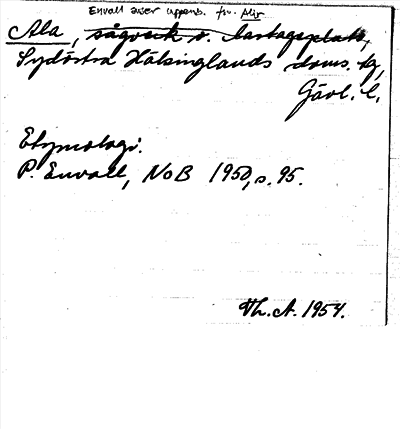 Envall avser uppenb. fv. Alir
Ala, sågverk o. lastageplats,
Sydöstra Hälsinglands doms. tg,
Gävl. l.
Etymologi.
P. Envall, NoB 1950, s. 95.
Th. A. 1954.